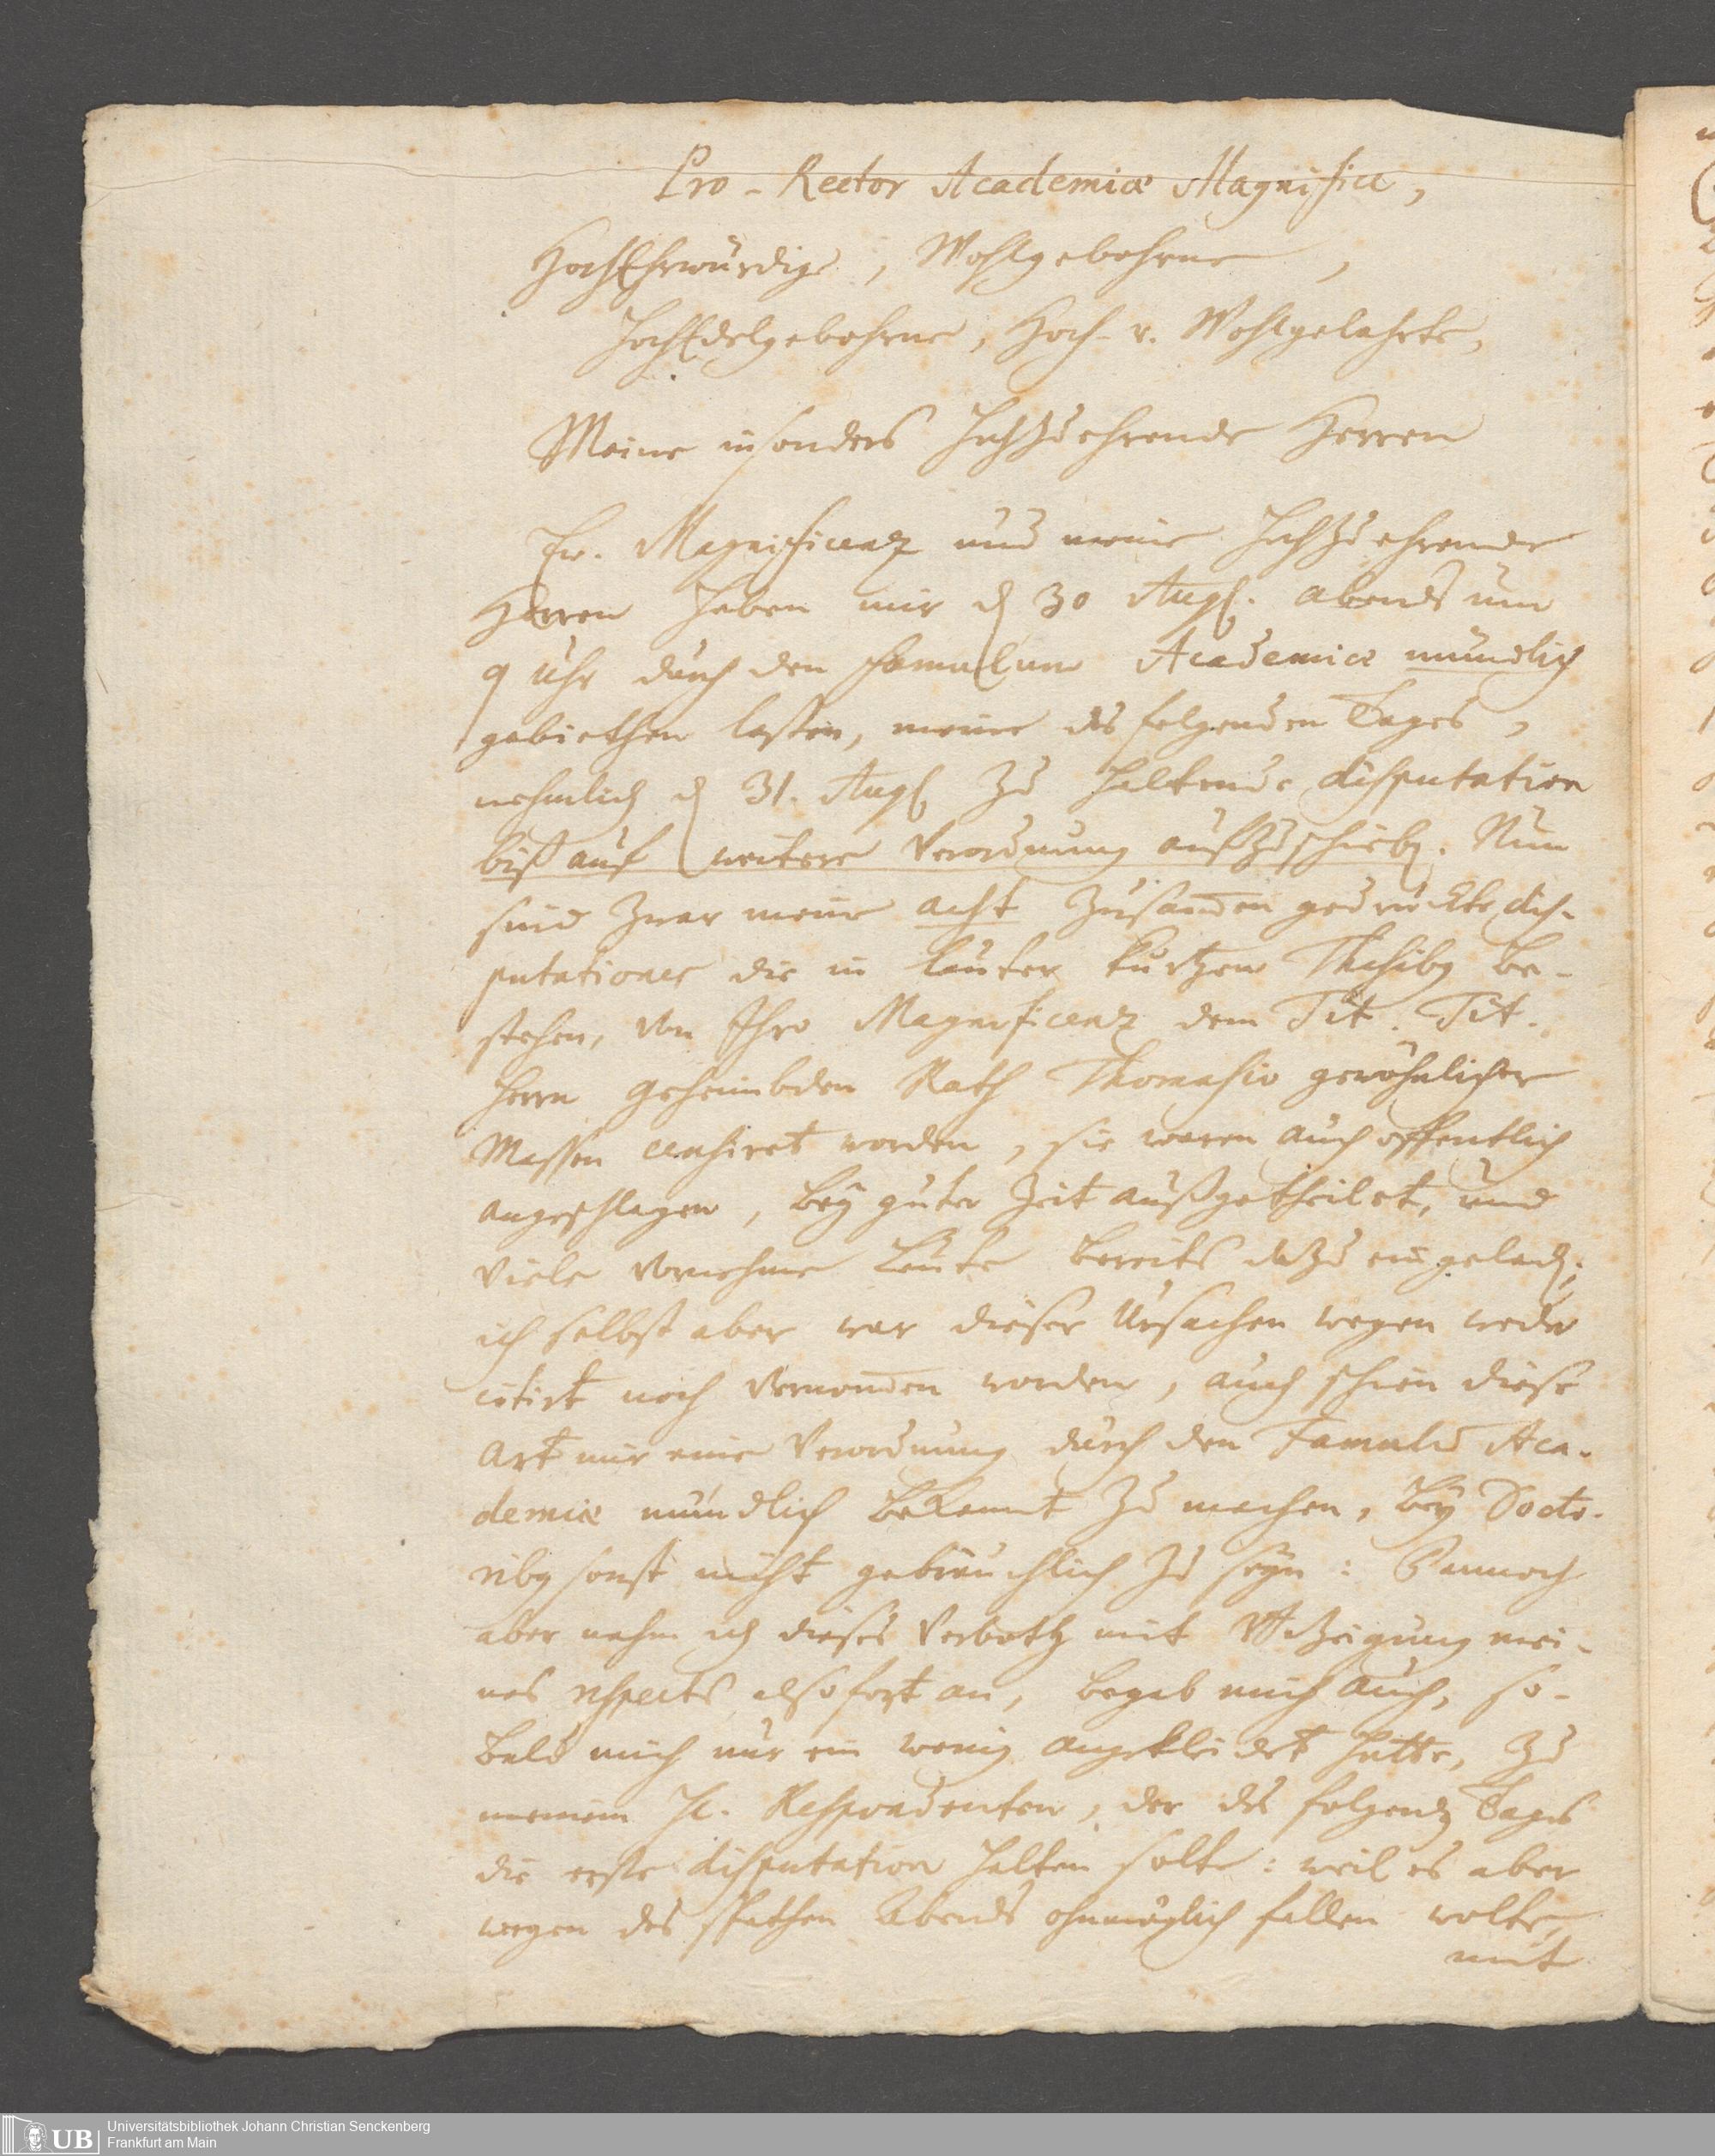 Pro-Rector Academiæ Magnifice,
HochEhrwürdige, Wohlgebohrne,
HochEdelgebohrne, Hoch- v. Wohlgelahrte,
Meine insonders Hochzuehrende Herren
Ew. Magnificenz und meine Hochzuehrende
Herren haben mir d 30 Aug. abends um
9 Uhr durch den Famulum Academiæ mündlich
gebiethen lassen, meine des folgenden Tages,
nehmlich d 31. Aug zu haltende disputation
biß auf weitere Verordnung aufzuschieben. Nun
sind zwar meine acht zusammen gedruckte dis-
putationes die in lauter kurtzen Thesibus be-
stehen, von Ihro Magnificenz dem Tit. Tit.
Herrn Geheimbden Rath Thomasio gewöhnlicher
Massen censiret worden, sie waren auch öffentlich
angeschlagen, bey guter Zeit außgetheilet, und
viele vornehme Leute bereits dazu eingeladen;
ich selbst aber war dieser Ursachen wegen weder
citirt noch vernommen worden, auch schien diese
Art mir eine Verordnung durch den Famulum Aca-
demiæ mündlich bekannt zu machen, bey Docto-
ribus sonst nicht gebräuchlich zu seyn: Dennoch
aber nahm ich dieses Verboth mit Bezeigung mei-
nes respects alsofort an, begab mich auch, so-
bald mich nur ein wenig angekleidet hatte, zu
meinem H. Respondenten, der des folgenden Tages
die erste disputation halten solte: weil es aber
wegen des spathen Abends ohnmöglich fallen wolte,
mit
UB
Universitätsbibliothek Johann Christian Senckenberg
Frankfurt am Main